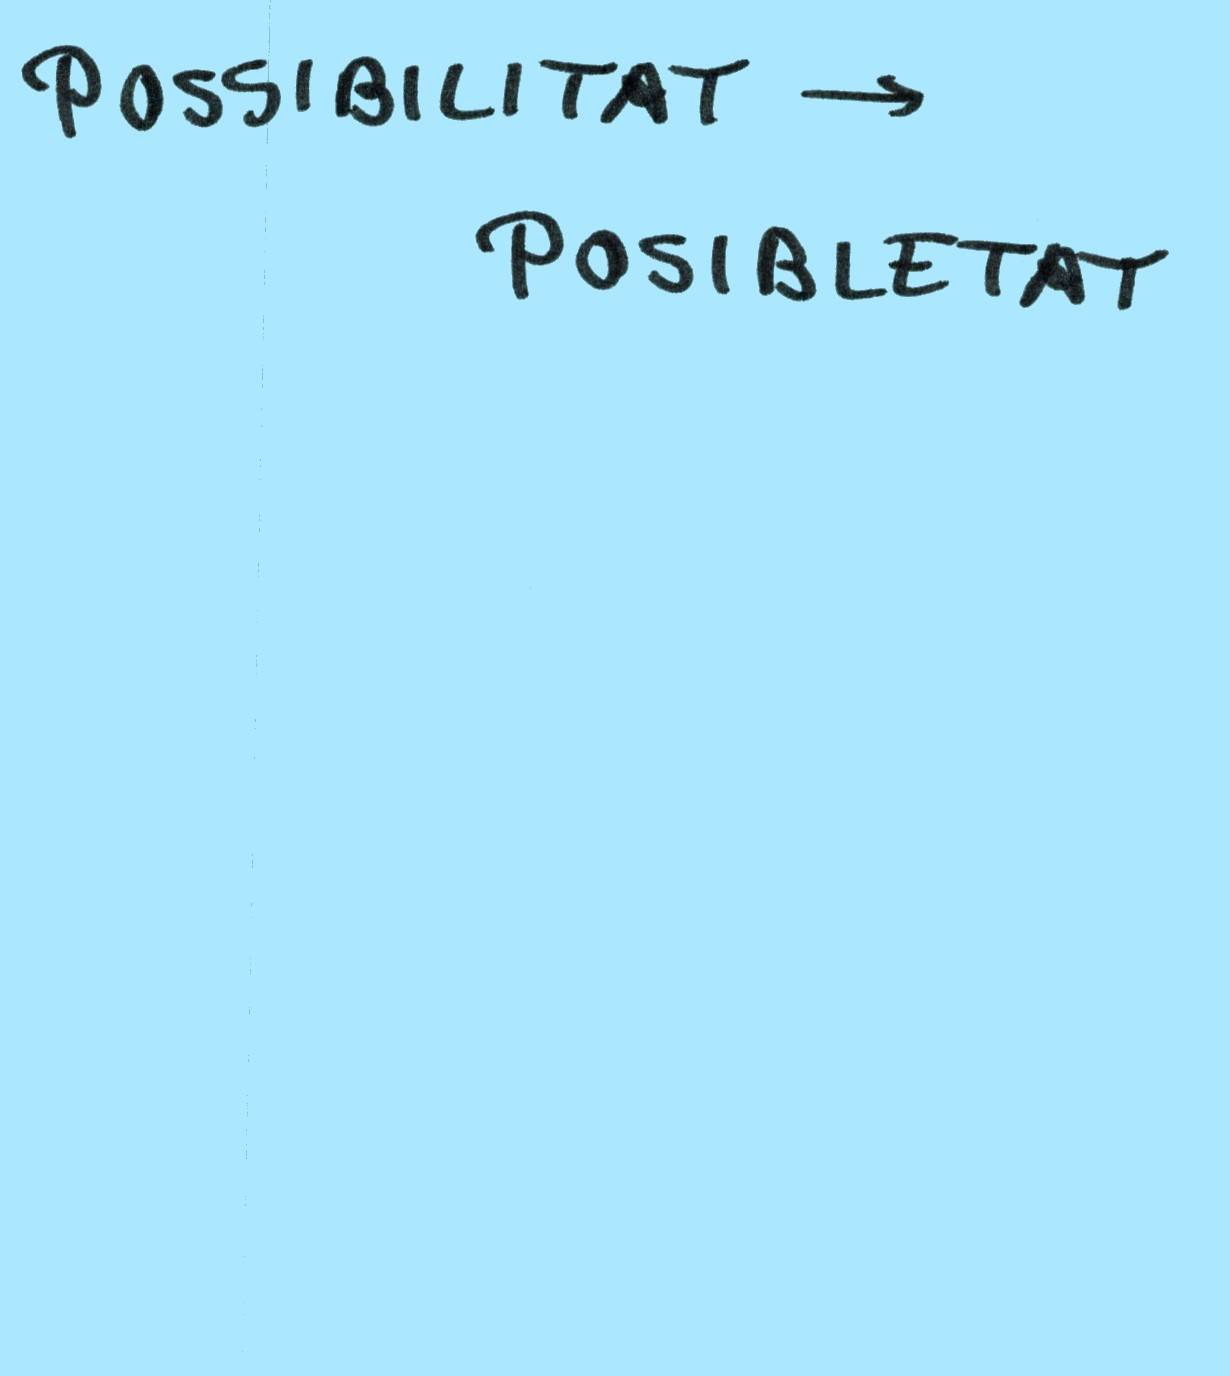 POSSIBILITAT →
POSIBLETAT